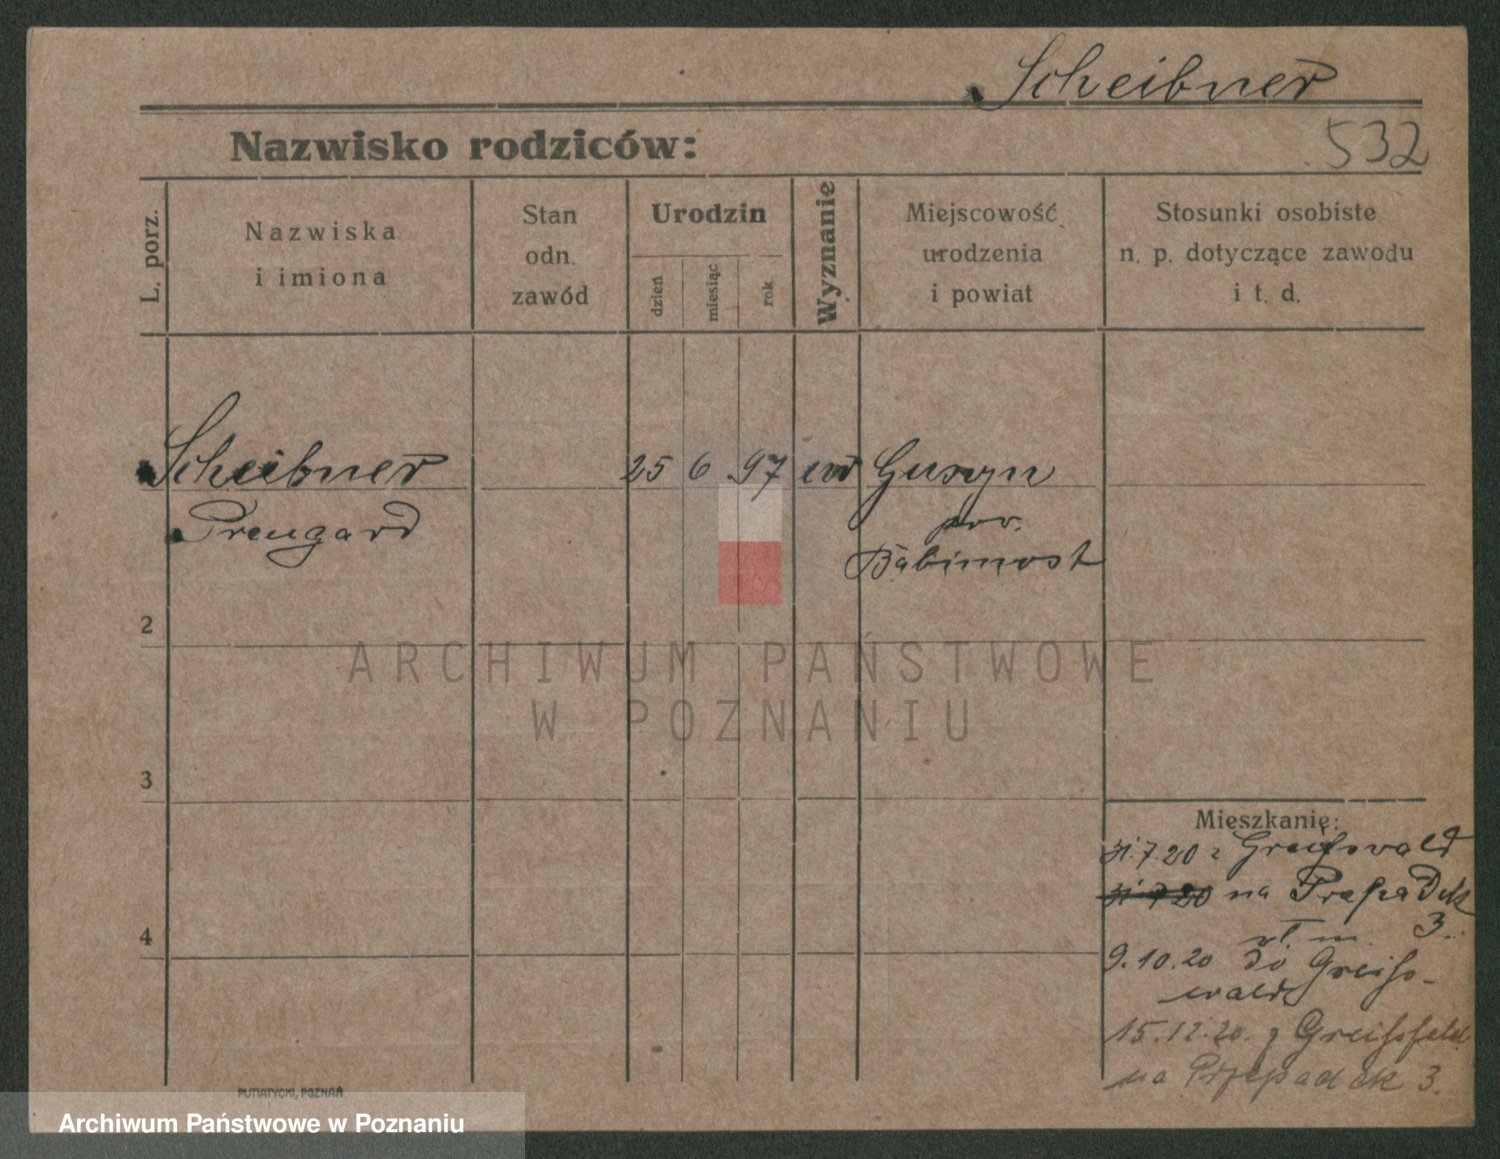 Scheibner
Nazwisko rodziców:
532
L. porz.
Nazwiska
i imiona
Stan
odn.
zawód
Urodzin
dzień
miesiąc
rok
Wyznanie
Miejscowość
urodzenia
i powiat
Stosunki osobiste
n. p. dotyczące zawodu
i t. d.
Scheibner 25 6 97
pow.
Babimost
2
ARCHIWUM PAŃSTWOWE
W POZNANIU
3
Mieszkanie:
31.7.20 z Greifswald
31.7.20 na
3.
4
9.10.20 do Greifs-
wald
15.12.20. z
na Przepadek 3.
PUTIATYCKI, POZNAŃ
Archiwum Państwowe w Poznaniu